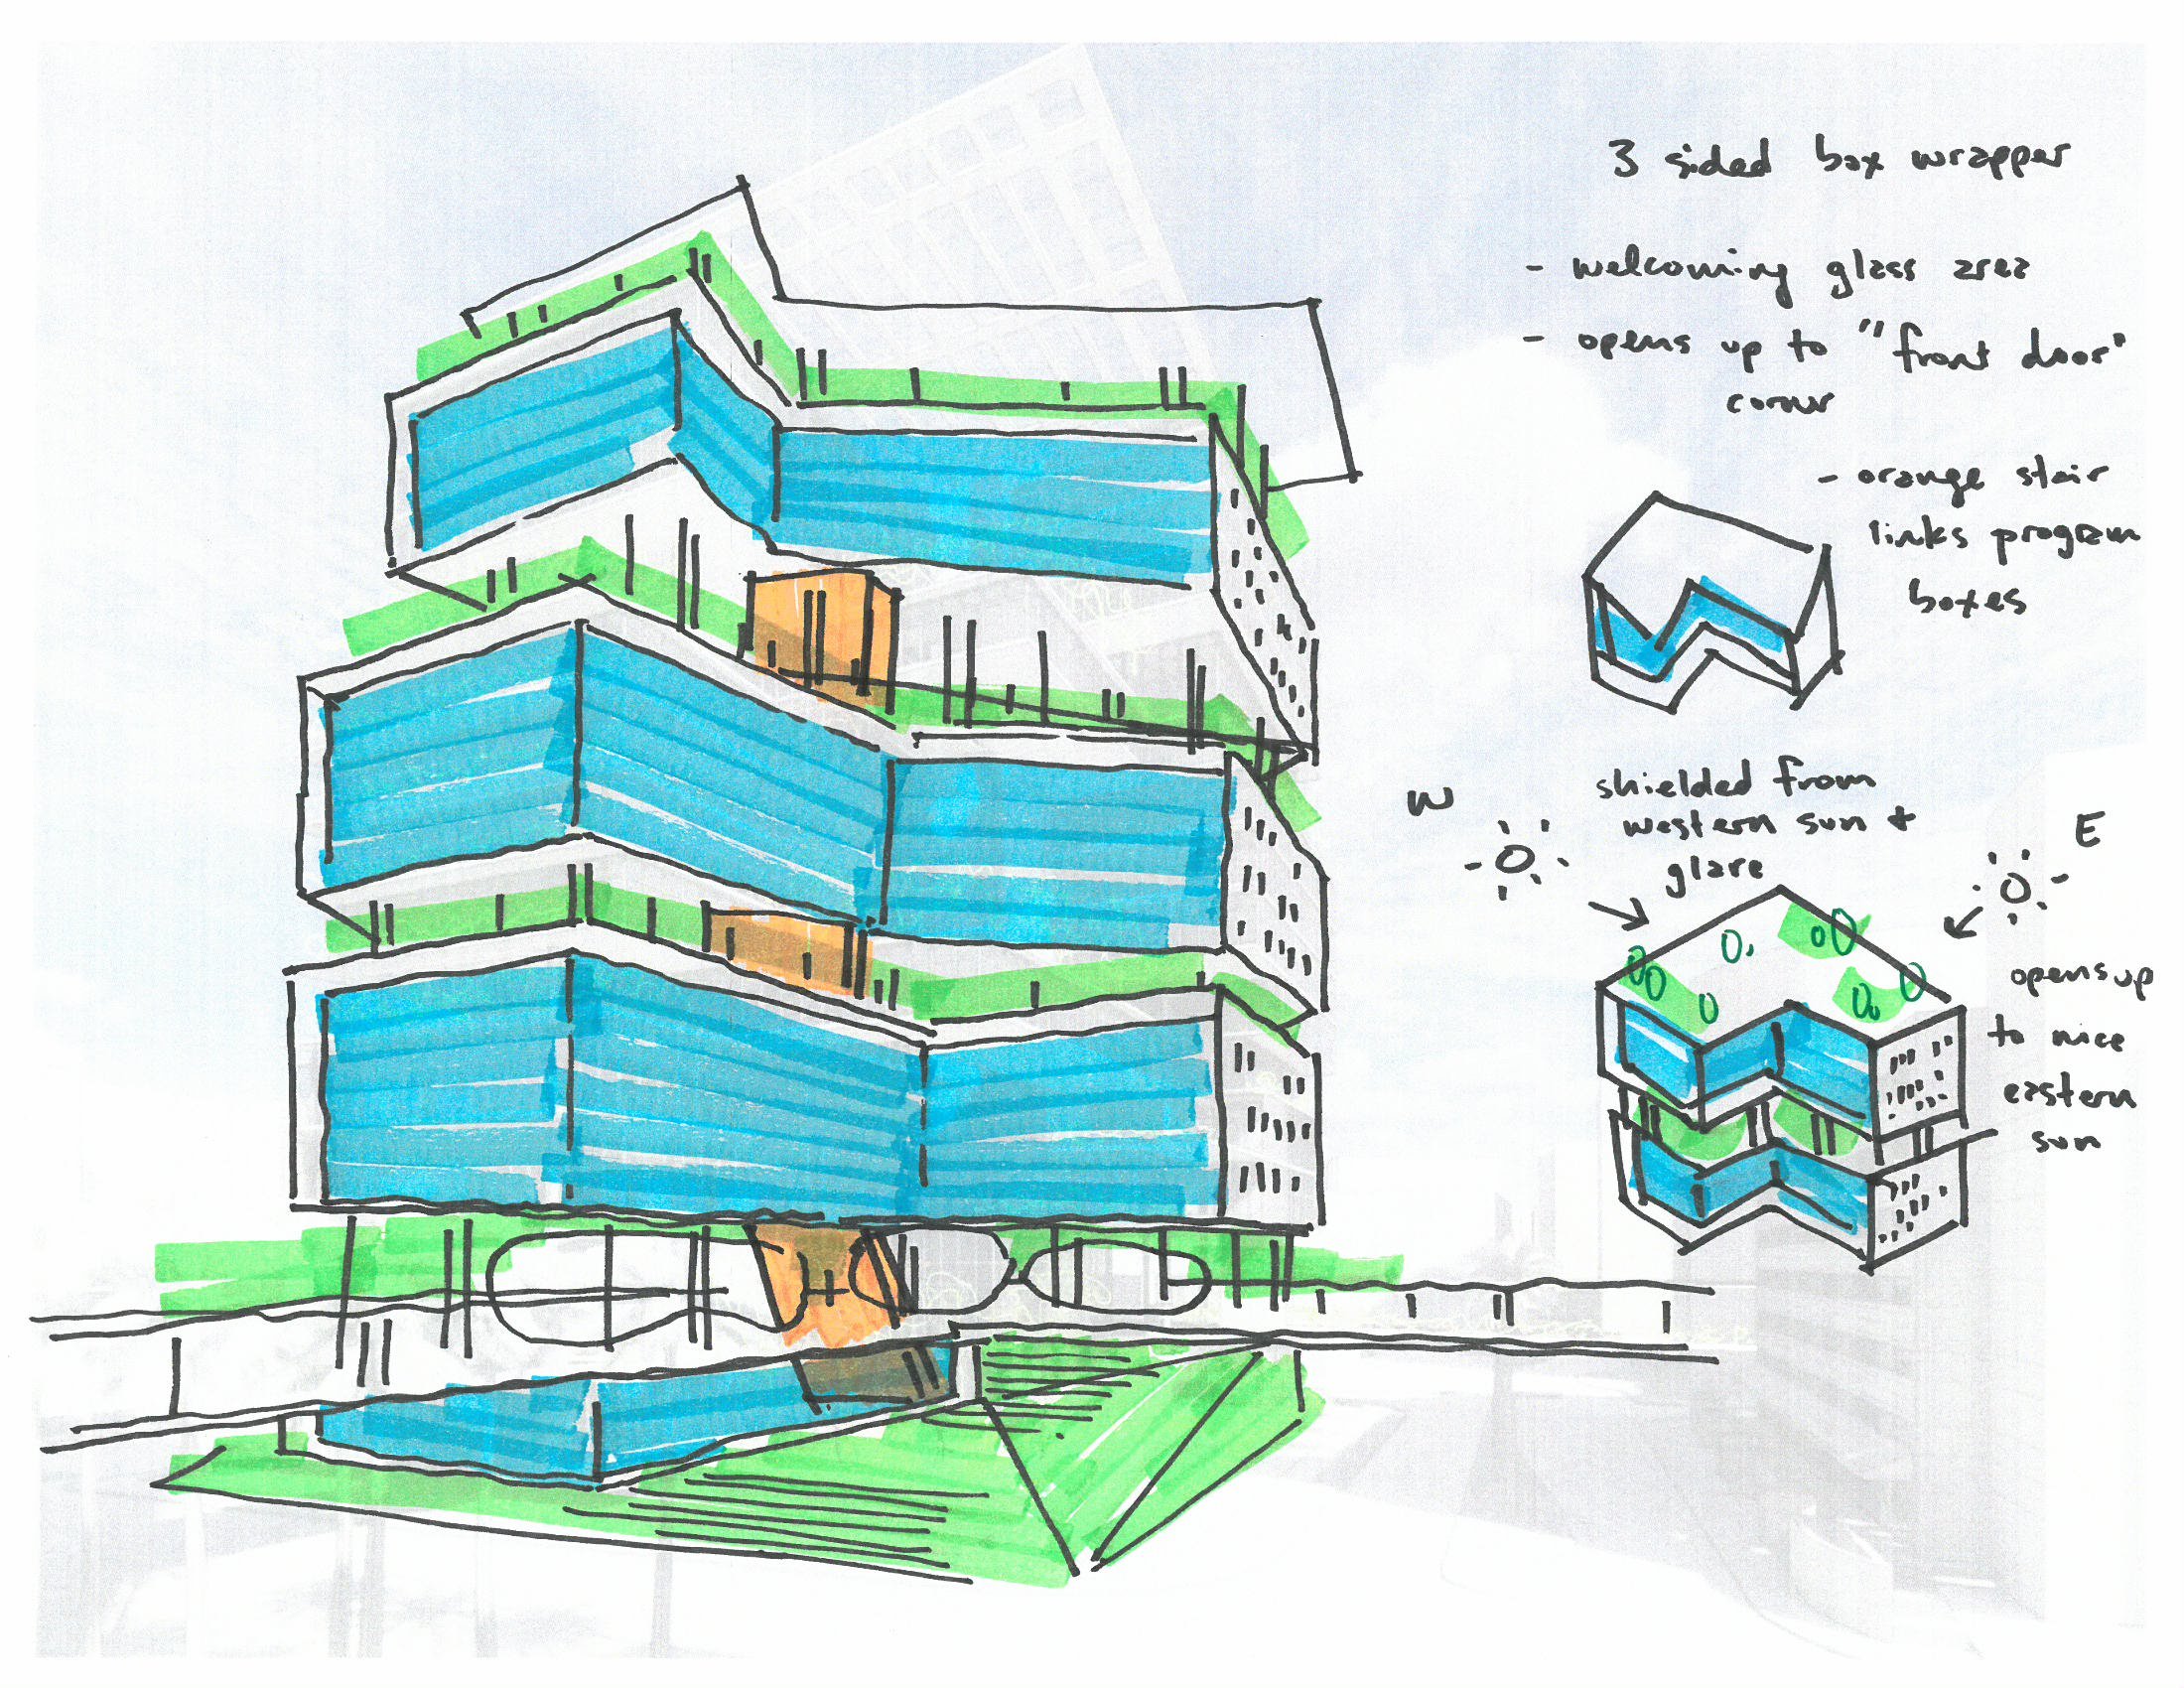 3 sided box wrapper
- welcoming glass area
- opens up to "front door"
corner
- orange stair
links program
boxes
W
shielded from
western sun +
glare
E
opens up
to nice
eastern
sun